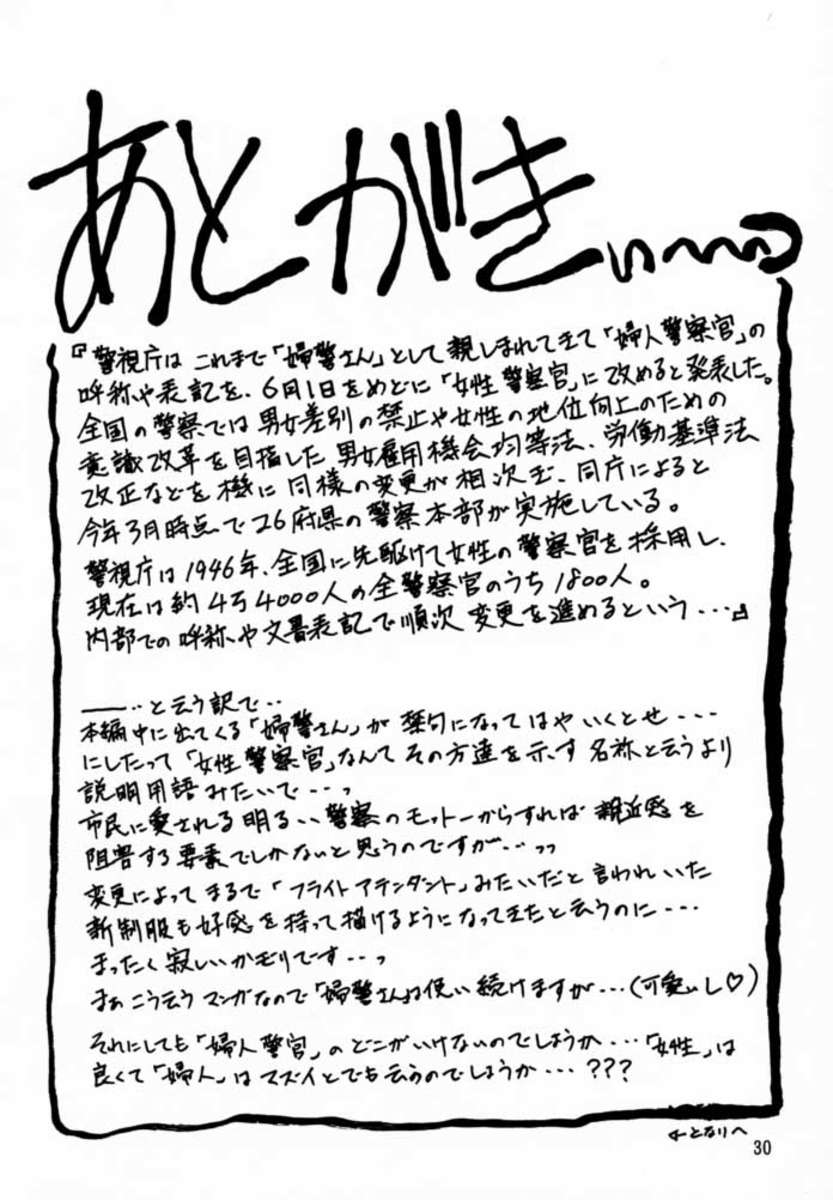 あとがきぃ〜〜〜
『警視庁は これまで「婦警さん」として親しまれてきて「婦人警察官」の
呼称や表記を、6月1日をめどに「女性警察官」に改めると発表した。
全国の警察では男女差別の禁止や女性の地位向上のための
意識改革を目指した男女雇用機会均等法、労働基準法
改正などを機に同様の変更が相次ぎ、同庁によると
今年3月時点で26府県の警察本部が実施している。
警視庁は1946年、全国に先駆けて女性の警察官を採用し、
現在は約4万4000人の全警察官のうち1800人。
内部での呼称や文書表記で順次変更を進めるという・・・』
――‥と云う訳で‥
本編中に出てくる「婦警さん」が禁句になって はや いくとせ・・・
にしたって「女性警察官」なんて その方達を示す名称と云うより
説明用語みたいで・・・っ
市民に愛される明るい警察のモットーからすれば親近感を
阻害する要素でしかないと思うのですが‥‥っっ
変更によって まるで「フライトアテンダント」みたいだと言われいた
新制服も好感を持って描けるようになってきたと云うのに・・・
まったく寂しいかぎりです・・・っ
まぁこう云うマンガなので「婦警さん」は使い続けますが・・・(可愛いし♡)
それにしても「婦人警官」のどこがいけないのでしょうか・・・「女性」は
良くて「婦人」はマズイとでも云うのでしょうか・・・???
←となりへ
30